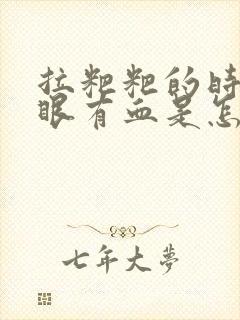 拉粑粑的时
眼有血是怎
七年大梦